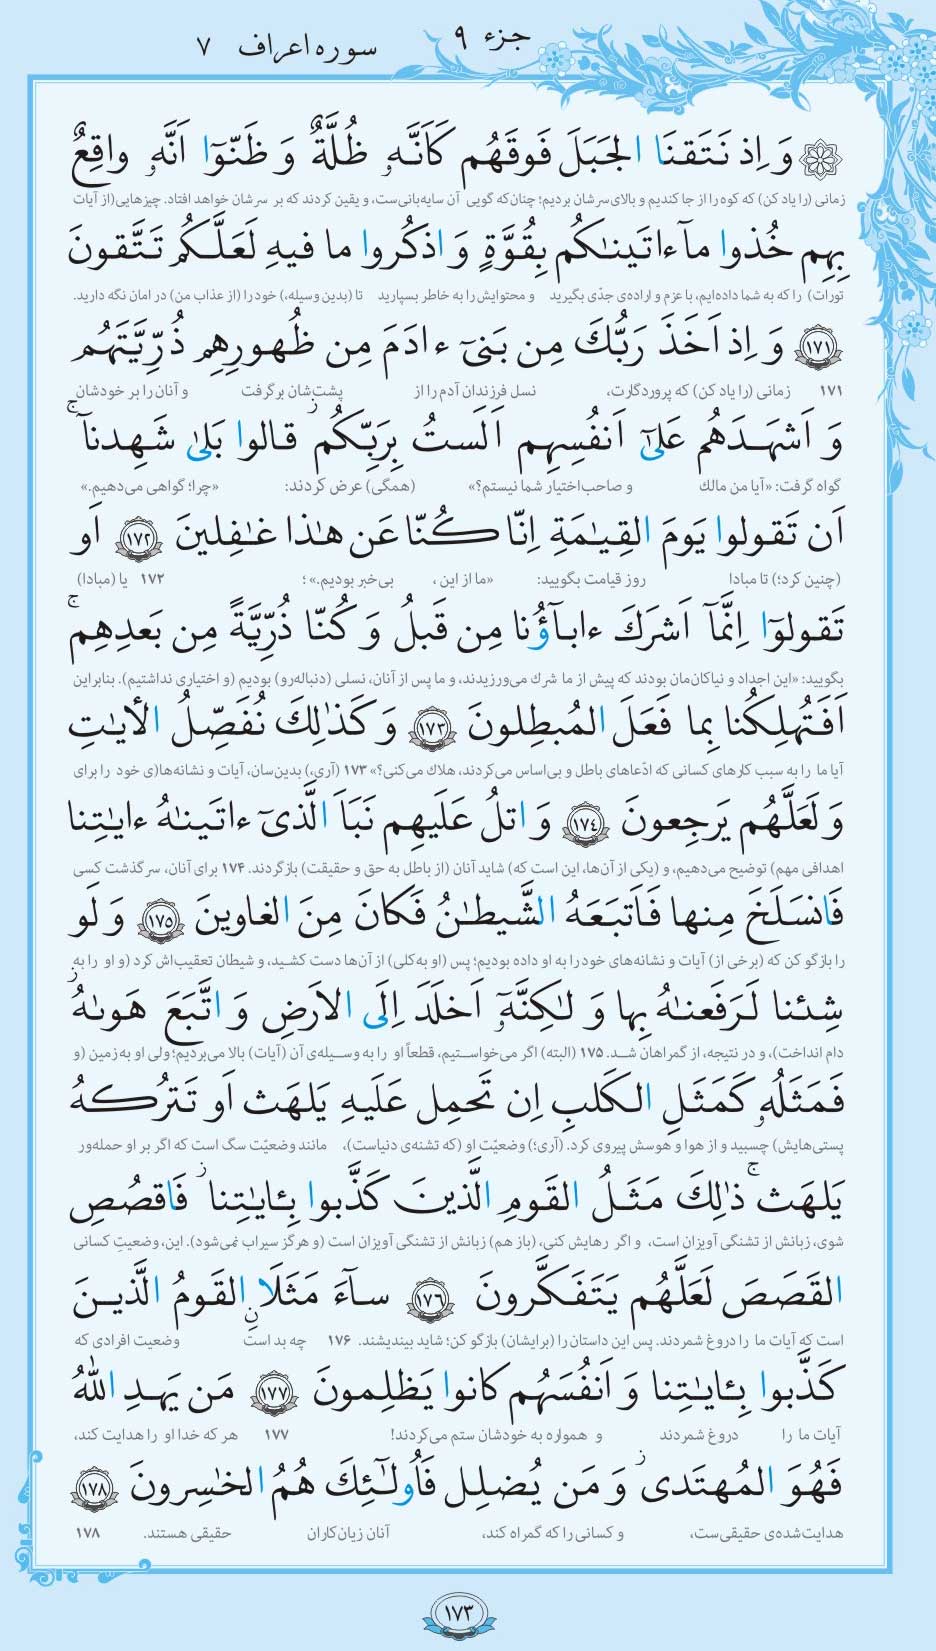 جزء ۹ سوره اعراف ۷
وَ اِذ نَتَقنَا الجَبَلَ فَوقَهُم كَاَنَّهٗ ظُلَّةٌ وَ ظَنّوٓا اَنَّهٗ واقِعٌ
زمانی (را یاد کن) که کوه را از جا کندیم و بالای سرشان بردیم؛ چنان‌که گویی آن سایه‌بانی‌ست، و یقین کردند که بر سرشان خواهد افتاد. چیزهایی (از آیات
بِهِم خُذوا مآ ءاتَینٰكُم بِقُوَّةٍ وَ اذكُروا ما فیهِ لَعَلَّكُم تَتَّقونَ
تورات) را که به شما داده‌ایم، با عزم و اراده‌ی جدّی بگیرید و محتوایش را به خاطر بسپارید تا (بدین وسیله،) خود را (از عذاب من) در امان نگه دارید.
﴿۱۷۱﴾ وَ اِذ اَخَذَ رَبُّكَ مِن بَنیٓ ءادَمَ مِن ظُهورِهِم ذُرِّیَّتَهُم
۱۷۱ زمانی (را یاد کن) که پروردگارت، نسل فرزندان آدم را از پشت‌شان برگرفت و آنان را بر خودشان
وَ اَشهَدَهُم عَلیٰٓ اَنفُسِهِم اَلَستُ بِرَبِّكُم ز قالوا بَلیٰ شَهِدنآ ج
گواه گرفت: «آیا من مالك و صاحب‌اختیار شما نیستم؟» (همگی) عرض کردند: «چرا؛ گواهی می‌دهیم.»
اَن تَقولوا یَومَ القِیٰمَةِ اِنّا كُنّا عَن هٰذا غٰفِلینَ ﴿۱۷۲﴾ اَو
(چنین کرد؛) تا مبادا روز قیامت بگویید: «ما از این، بی‌خبر بودیم.»؛ ۱۷۲ یا (مبادا)
تَقولوٓا اِنَّمآ اَشرَكَ ءابآؤُنا مِن قَبلُ وَ كُنّا ذُرِّیَّةً مِن بَعدِهِم ج
بگویید: «این اجداد و نیاکان‌مان بودند که پیش از ما شرك می‌ورزیدند، و ما پس از آنان، نسلی (دنباله‌رو) بودیم (و اختیاری نداشتیم). بنابراین
اَفَتُهلِكُنا بِما فَعَلَ المُبطِلونَ ﴿۱۷۳﴾ وَ كَذٰلِكَ نُفَصِّلُ الأیٰتِ
آیا ما را به سبب کارهای کسانی که ادّعاهای باطل و بی‌اساس می‌کردند، هلاك می‌کنی؟» ۱۷۳ (آری،) بدین‌سان، آیات و نشانه‌ها(ی خود را برای
وَ لَعَلَّهُم یَرجِعونَ ﴿۱۷۴﴾ وَ اتلُ عَلَیهِم نَبَاَ الَّذیٓ ءاتَینٰهُ ءایٰتِنا
اهدافی مهم) توضیح می‌دهیم، و (یکی از آن‌ها، این است که) شاید آنان (از باطل به حق و حقیقت) بازگردند. ۱۷۴ برای آنان، سرگذشت کسی
فَانسَلَخَ مِنها فَاَتبَعَهُ الشَّیطٰنُ فَكانَ مِنَ الغاوینَ ﴿۱۷۵﴾ وَ لَو
را بازگو کن که (برخی از) آیات و نشانه‌های خود را به او داده بودیم؛ پس (او به‌کلی) از آن‌ها دست کشید، و شیطان تعقیب‌اش کرد (و او را به
شِئنا لَرَفَعنٰهُ بِها وَ لٰكِنَّهٗٓ اَخلَدَ اِلَی الاَرضِ وَ اتَّبَعَ هَوىٰهُ ز
دام انداخت)، و در نتیجه، از گمراهان شد. ۱۷۵ (البته) اگر می‌خواستیم، قطعاً او را به وسیله‌ی آن (آیات) بالا می‌بردیم؛ ولی او به زمین (و
فَمَثَلُهٗ كَمَثَلِ الكَلبِ اِن تَحمِل عَلَیهِ یَلهَث اَو تَترُكهُ
پستی‌هایش) چسبید و از هوا و هوسش پیروی کرد. (آری؛) وضعیّت او (که تشنه‌ی دنیاست)، مانند وضعیّت سگ است که اگر بر او حمله‌ور
یَلهَث ج ذٰلِكَ مَثَلُ القَومِ الَّذینَ كَذَّبوا بِـٔایٰتِنا ز فَاقصُصِ
شوی، زبانش از تشنگی آویزان است، و اگر رهایش کنی، (باز هم) زبانش از تشنگی آویزان است (و هرگز سیراب نمی‌شود). این، وضعیتِ کسانی
القَصَصَ لَعَلَّهُم یَتَفَكَّرونَ ﴿۱۷۶﴾ سآءَ مَثَلًا نِ القَومُ الَّذینَ
است که آیات ما را دروغ شمردند. پس این داستان را (برایشان) بازگو کن؛ شاید بیندیشند. ۱۷۶ چه بد است وضعیت افرادی که
كَذَّبوا بِـٔایٰتِنا وَ اَنفُسَهُم كانوا یَظلِمونَ ﴿۱۷۷﴾ مَن یَهدِ اللّٰهُ
آیات ما را دروغ شمردند و همواره به خودشان ستم می‌کردند! ۱۷۷ هر که خدا او را هدایت کند،
فَهُوَ المُهتَدی ز وَ مَن یُضلِل فَاُولٰٓئِكَ هُمُ الخٰسِرونَ ﴿۱۷۸﴾
هدایت‌شده‌ی حقیقی‌ست، و کسانی را که گمراه کند، آنان زیان‌کاران حقیقی هستند. ۱۷۸
۱۷۳